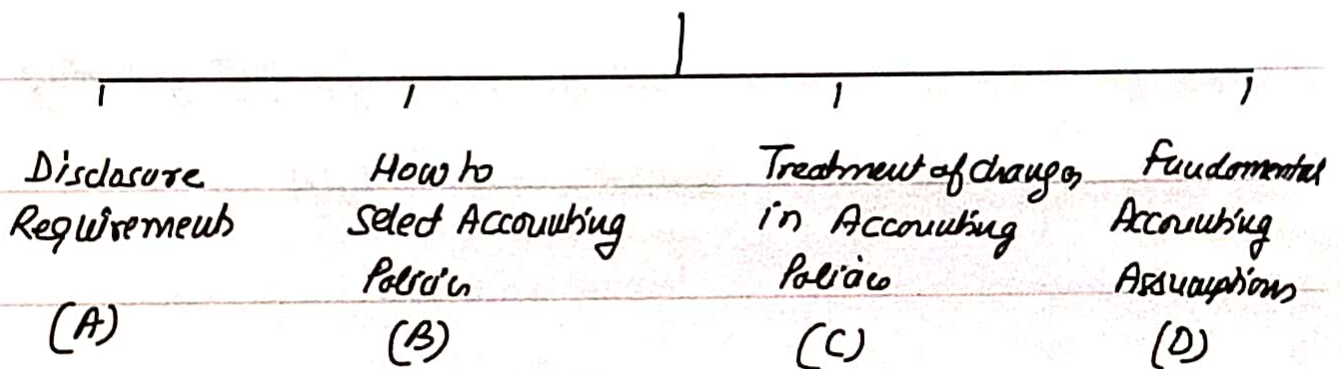 Disclosure
Requirements
(A)
How to
select Accounting
Policies
(B)
Treatment of changes
in Accounting
Policies
(C)
Fundamental
Accounting
Assumptions
(D)